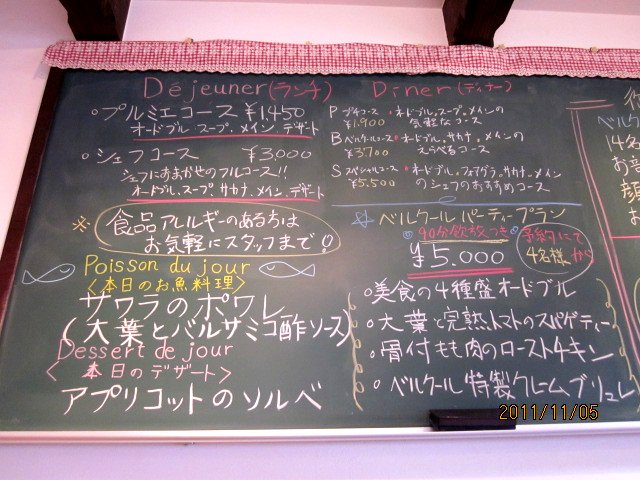 Déjeuner(ランチ)
○プルミエコース ¥1,450
オードブル、スープ、メイン、デザート
○シェフコース ¥3,000
シェフにおまかせのフルコース!!
オードブル、スープ、サカナ、メイン、デザート
※食品アレルギーのある方は
お気軽にスタッフまで!
Poisson du jour
<本日のお魚料理>
サワラのポワレ
(大葉とバルサミコ酢ソース)
Dessert de jour
<本日のデザート>
アプリコットのソルベ
Diner(ディナー)
P プチコース ○オードブル、スープ、メインの
¥1,900 気軽なコース
B ベルクールコース ○オードブル、サカナ、メインの
¥3,700 えらべるコース
S スペシャルコース ○オードブル、フォアグラ、サカナ、メイン
¥5,500 のシェフのおすすめコース
☆ベルクールパーティープラン
90分飲放つき
¥5,000
予約にて
4名様から
○美食の4種盛オードブル
○大葉と完熟トマトのスパゲティー
○骨付もも肉のローストチキン
○ベルクール特製クレームブリュレ
ベルク
4名
お
顔
2011/11/05